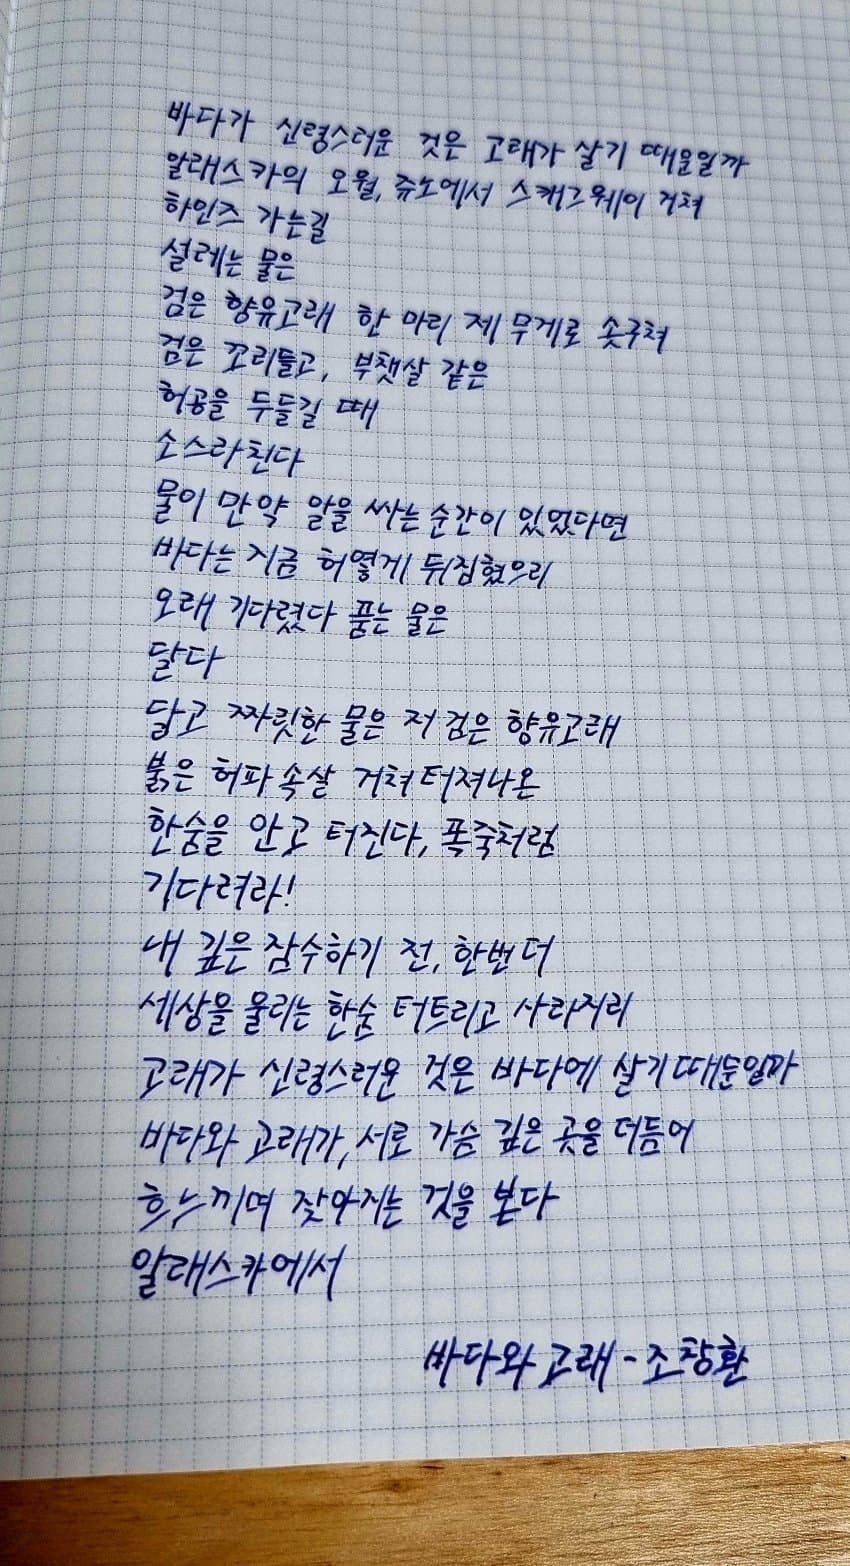 바다가 신령스러운 것은 고래가 살기 때문일까
알래스카의 오월, 쥬노에서 스캐그웨이 거쳐
하인즈 가는길
설레는 물은
검은 향유고래 한 마리 제 무게로 솟구쳐
검은 꼬리들고, 부챗살 같은
허공을 두들길 때
소스라친다
물이 만약 알을 싸는 순간이 있었다면
바다는 지금 허옇게 뒤집혔으리
오래 기다렸다 품는 물은
달다
달고 짜릿한 물은 저 검은 향유고래
붉은 허파 속살 거쳐 터져나온
한숨을 안고 터진다, 폭죽처럼
기다려라!
내 깊은 잠수하기 전, 한번 더
세상을 울리는 한숨 터트리고 사라지리
고래가 신령스러운 것은 바다에 살기 때문일까
바다와 고래가, 서로 가슴 깊은 곳을 더듬어
흐느끼며 잦아지는 것을 본다
알래스카에서
바다와 고래 - 조창환